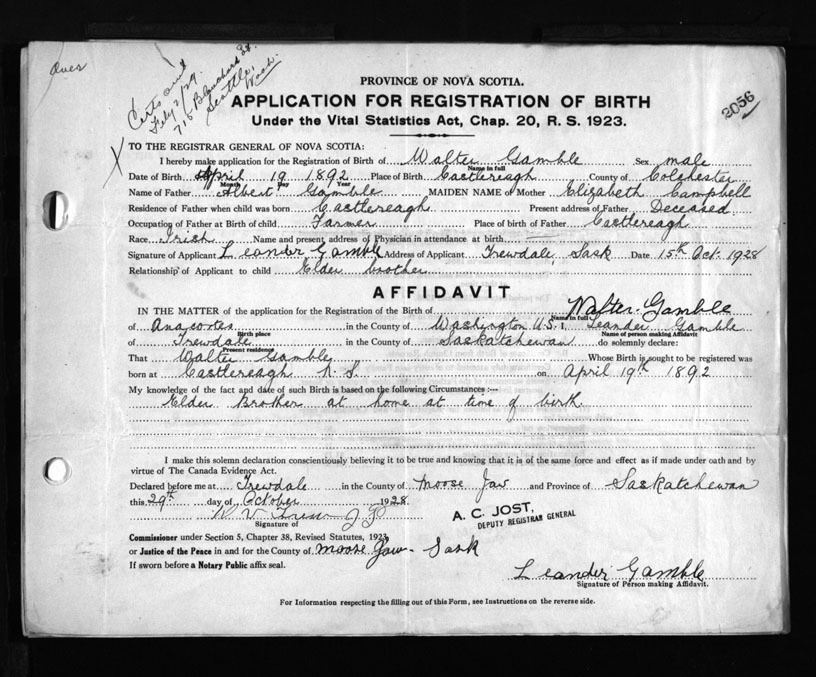 Over
Certs sent
Feby 2/29.
715 Blanchard St.
Seattle,
Wash.
PROVINCE OF NOVA SCOTIA.
2056
APPLICATION FOR REGISTRATION OF BIRTH
Under the Vital Statistics Act, Chap. 20, R. S. 1923.
X
TO THE REGISTRAR GENERAL OF NOVA SCOTIA:
I hereby make application for the Registration of Birth of Walter Gamble Sex male
Name in full
Date of Birth April 19 1892 Place of Birth Castlereagh County of Colchester
Month Day Year
Name of Father Albert Gamble MAIDEN NAME of Mother Elizabeth Campbell
Residence of Father when child was born Castlereagh Present address of Father Deceased
Occupation of Father at Birth of child Farmer Place of birth of Father Castlereagh
Race Irish Name and present address of Physician in attendance at birth —
Signature of Applicant Leander Gamble Address of Applicant Trewdale, Sask Date 15th Oct. 1928
Relationship of Applicant to child Elder brother
AFFIDAVIT
IN THE MATTER of the application for the Registration of the Birth of Walter Gamble
Name in full
of Anacortes in the County of Washington U.S. I, Leander Gamble
Birth place Name of person making Affidavit
of Trewdale in the County of Saskatchewan do solemnly declare:
Present residence
That Walter Gamble Whose Birth is sought to be registered was
born at Castlereagh N.S. on April 19th 1892
My knowledge of the fact and date of such Birth is based on the following Circumstances :—
Elder Brother at home at time of birth
I make this solemn declaration conscientiously believing it to be true and knowing that it is of the same force and effect as if made under oath and by
virtue of The Canada Evidence Act.
Declared before me at Trewdale in the County of Moose Jaw and Province of Saskatchewan
this 29th day of October 1928
J P
Signature of
A. C. JOST,
DEPUTY REGISTRAR GENERAL
Commissioner under Section 5, Chapter 38, Revised Statutes, 1923
or Justice of the Peace in and for the County of Moose Jaw - Sask
If sworn before a Notary Public affix seal.
Leander Gamble
Signature of Person making Affidavit.
For Information respecting the filling out of this Form, see Instructions on the reverse side.